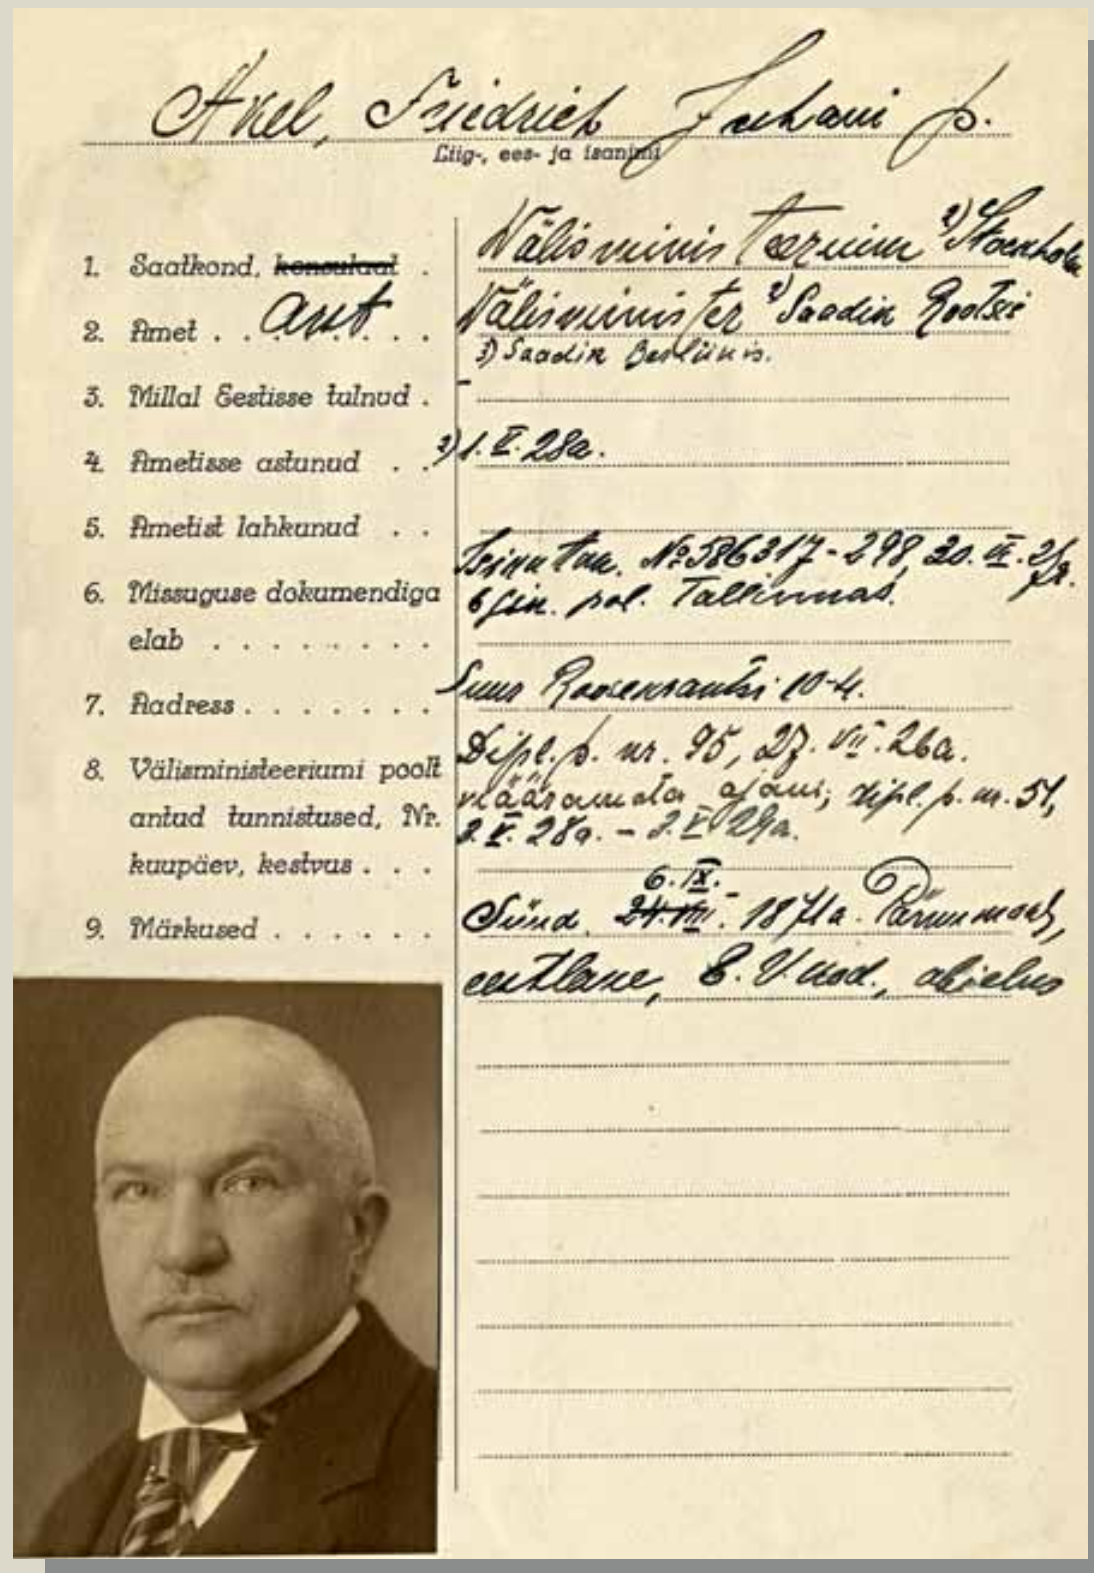 Akel, Friedrich Juhani p.
Liig-, ees- ja isanimi
1. Saatkond, konsulaat . Välisministeerium 2) Stockholm
asut
2. Amet . . . . . . . Välisminister 2) Saadik Rootsis
3) Saadik Berliinis.
3. Millal Eestisse tulnud . -
4. Ametisse astunud . . 2) 1. V. 28a.
5. Ametist lahkunud . .
6. Missuguse dokumendiga Isikutun. № 586317-298, 30. III. 27a.
elab . . . . . . . . 6 jsk. pol. Tallinnas.
7. Aadress . . . . . . . Suur Roosenkrantsi 10-4.
8. Välisministeeriumi poolt Dipl. p. nr. 95, 27. VII. 26a.
antud tunnistused, Nr. määramata ajani; dipl. p. nr. 51,
kuupäev, kestvus . . . 2. V. 28a. - 2. V. 29a.
6. IX.
9. Märkused . . . . . . Sünd. 24. VIII. 1871a. Pärnumaal,
eestlane, E. V. kod., abielus